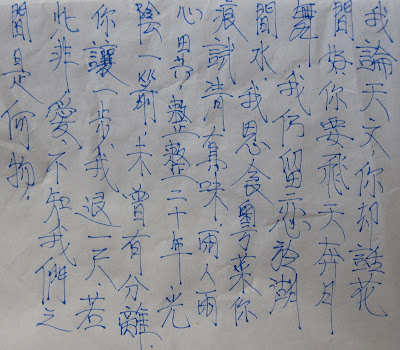 我論天文你却話花
間,當你要飛天奔月
舞,我仍留 於湖
間水,我思食粵菜你
痕試清真味,兩人兩
心異,整整二十年,光
陰一箭,未曾有分離.
你讓一步我退一尺,若
此非愛,不知我們之
間是何物.